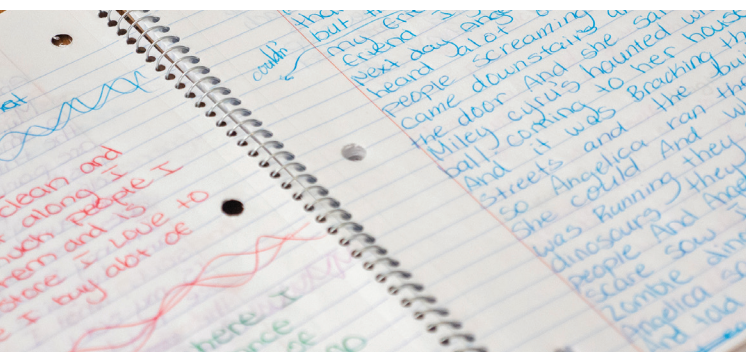 eat
clean and
along I
much people I
ard is
store I Love to
I buy alot of
here I
once
couldn
tha
but th
my frie
friend
next day Ang
heard alot o
people screaming
came downstairs a
the door And she sa
Miley cyrus haunted w
ball, coming to her house
And it was Braching th
streets and the bui
so Angelica ran tha
She could And wh
was Running they
dinosaurs they
people And Ange
scare saw
zombie din
Angelica sc
And told